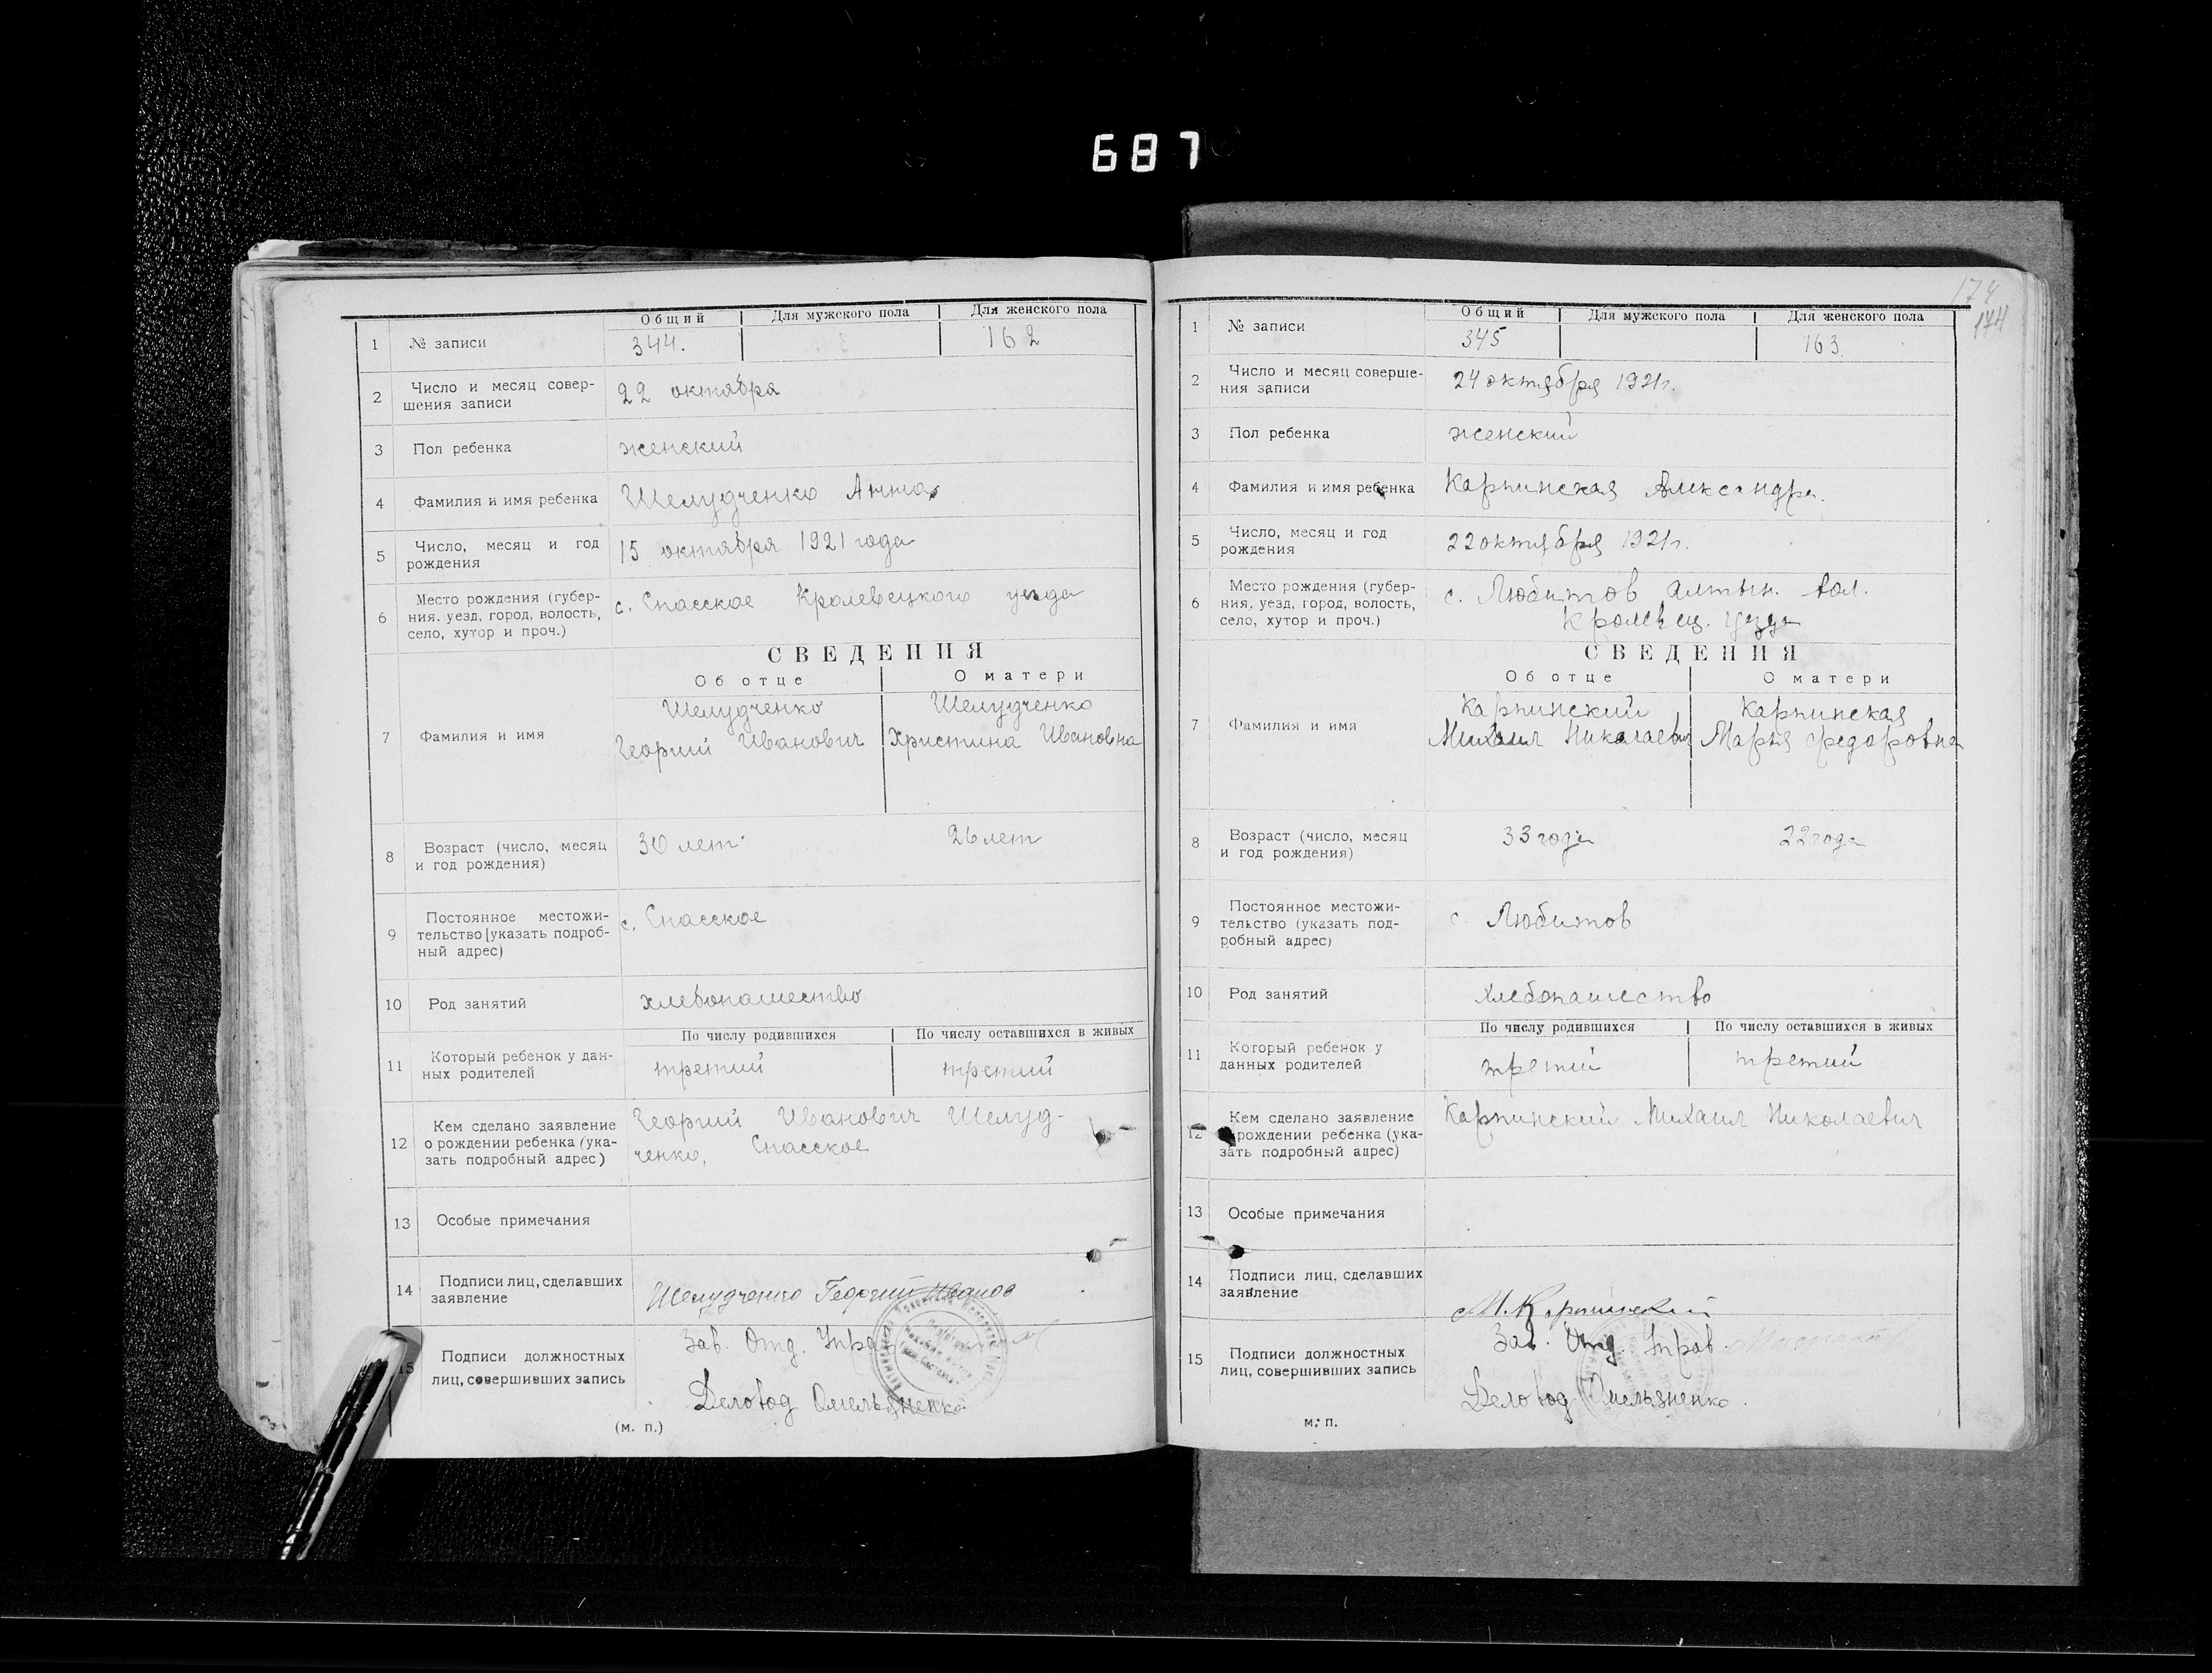 687
Общий Для мужского пола Для женского пола
1 № записи 344. 162
2 Число и месяц совер-
шения записи
22 октября
3 Пол ребенка женский
4 Фамилия и имя ребенка Шелудченко Анна
5 Число, месяц и год
рождения
15 октября 1921 года
6 Место рождения (губер-
ния, уезд, город, волость,
село, хутор и проч.)
с. Спасское Кролевецкого уезда
СВЕДЕНИЯ
Об отце О матери
7 Фамилия и имя
Шелудченко Шелудченко
Георгий Иванович Христина Ивановна
8 Возраст (число, месяц
и год рождения)
30 лет 26 лет
9 Постоянное местожи-
тельство [указать подроб-
ный адрес)
с. Спасское
10 Род занятий хлебопашество
По числу родившихся По числу оставшихся в живых
11 Который ребенок у дан-
ных родителей
третий третий
12 Кем сделано заявление
о рождении ребенка (ука-
зать подробный адрес)
Георгий Иванович Шелуд-
ченко, Спасское
13 Особые примечания
14 Подписи лиц, сделавших
заявление
Шелудченко Георгий Иванов
15 Подписи должностных
лиц, совершивших запись
Зав. Отд. Управ
Деловод Омельяненко
(м. п.)
174
174
Общий Для мужского пола Для женского пола
1 № записи 345 163
2 Число и месяц соверше-
ния записи
24 октября 1921г.
3 Пол ребенка женский
4 Фамилия и имя ребенка Карпинская Александра.
5 Число, месяц и год
рождения
22 октября 1921г.
6 Место рождения (губер-
ния, уезд, город, волость,
село, хутор и проч.)
с. Любитов Алтын. вол.
Кролевец. уезда
СВЕДЕНИЯ
Об отце О матери
7 Фамилия и имя
Карпинский Карпинская
Михаил Николаевич Марья Федоровна
8 Возраст (число, месяц
и год рождения)
33 года 22 года
9 Постоянное местожи-
тельство (указать под-
робный адрес)
с. Любитов
10 Род занятий хлебопашество
По числу родившихся По числу оставшихся в живых
11 Который ребенок у
данных родителей
третий третий
12 Кем сделано заявление
о рождении ребенка (ука-
зать подробный адрес)
Карпинский Михаил Николаевич
13 Особые примечания
14 Подписи лиц, сделавших
заявление
М. Карпинский
15 Подписи должностных
лиц, совершивших запись
Зав. Отд. Управ.
Деловод Омельяненко.
м. п.